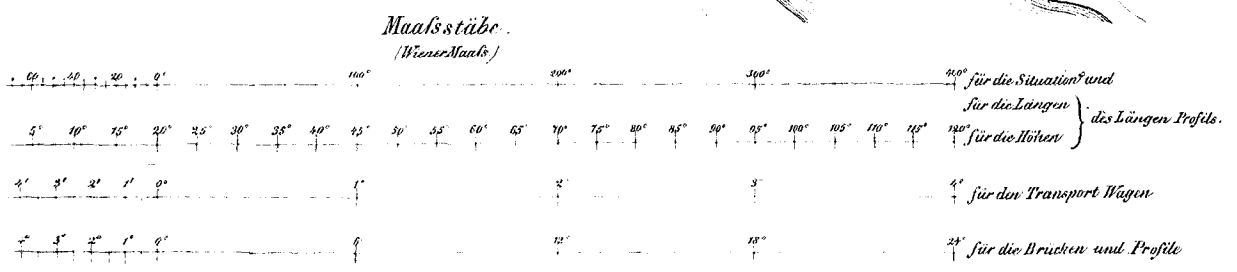 Maaſsstäbe.
(Wiener Maaſs)
60 40 20 0° 100° 200° 300° 400° für die Situation und
für die Längen
des Längen Profils.
5° 10° 15° 20° 25° 30° 35° 40° 45° 50° 55° 60° 65° 70° 75° 80° 85° 90° 95° 100° 105° 110° 115° 120° für die Höhen
4' 3' 2' 1' 0° 1° 2° 3° 4° für den Transport Wagen
4° 3° 2° 1° 0° 6 12° 18° 24° für die Brücken und Profile